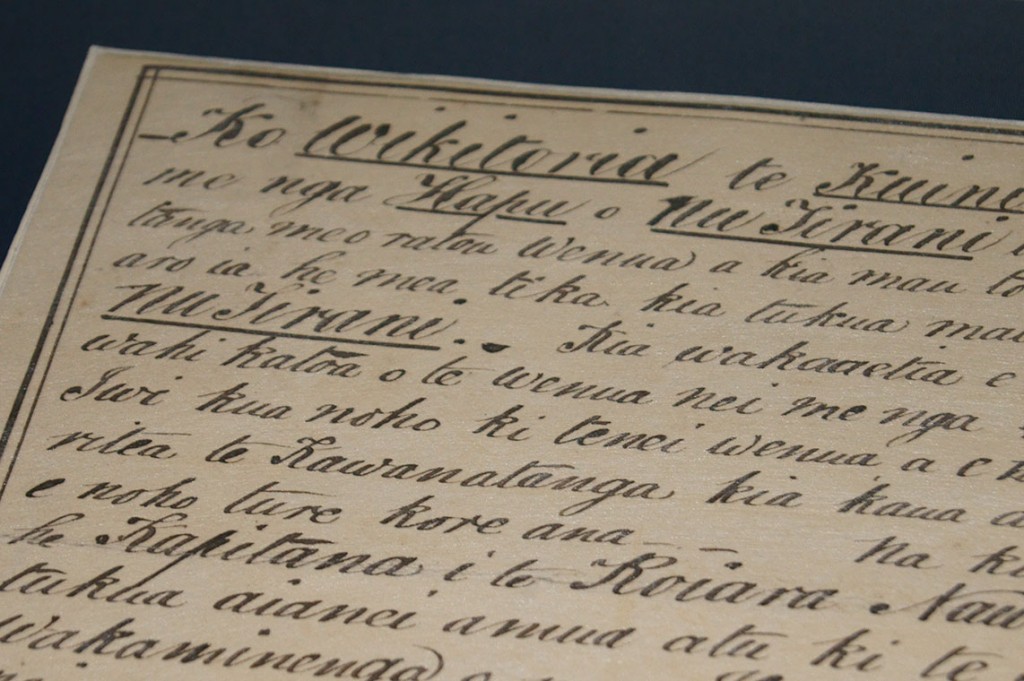 Ko Wikitoria te Kuini
me nga Hapu o Nu Tirani
tanga me o ratou wenua a kia mau to
aro ia he mea tika kia tukua mai
Nu Tirani. - Kia wakaaetia e
wahi katoa o te wenua nei me nga
Iwi kua noho ki tenei wenua a e
ritea te Kawanatanga kia kaua a
e noho ture kore ana Na ku
he Kapitana i te Roiara Naw
tukua aianei amua atu ki te
wakaminenga o